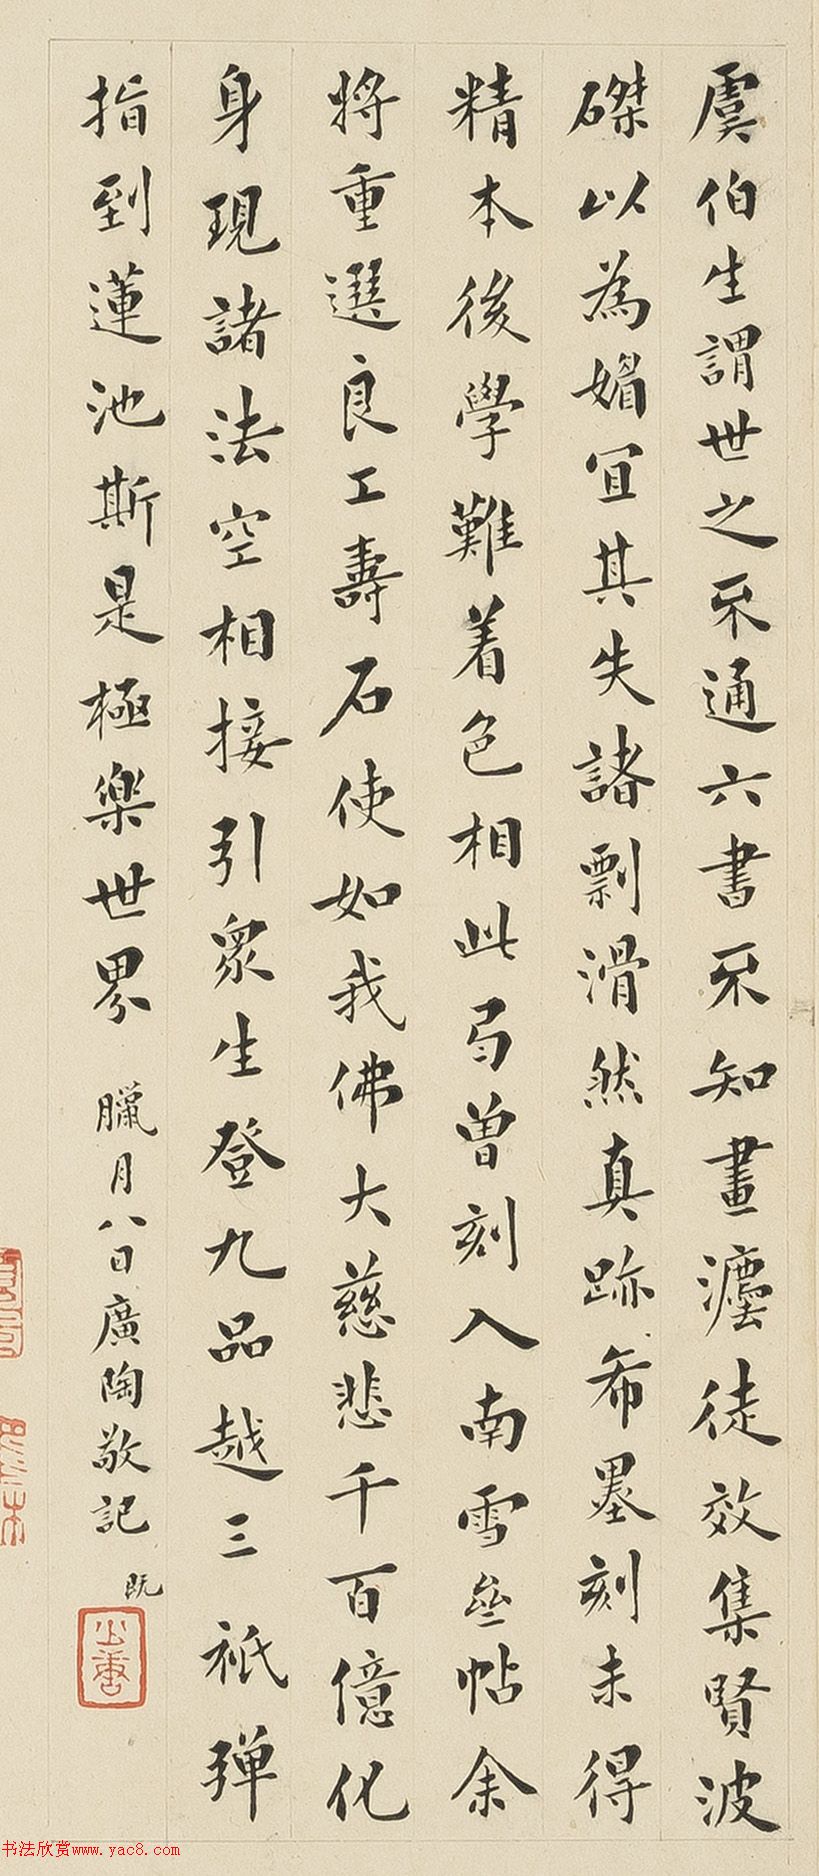 虞伯生謂世之不通六書不知畫灋徒效集賢波
磔以為媚宜其失諸剽滑然真跡希墨刻未得
精本後學難着色相此弓曾刻入南雪亝帖余
將重選良工壽石使如我佛大慈悲千百億化
身現諸法空相接引衆生登九品越三祇彈
指到蓮池斯是極樂世界 臘月八日廣陶敬記
少唐
书法欣赏www.yac8.com